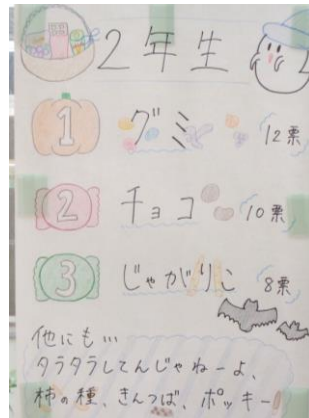 2年生
1 グミ 12票
2 チョコ 10票
3 じゃがりこ 8票
他にも…
タラタラしてんじゃねーよ、
柿の種、きんつば、ポッキー